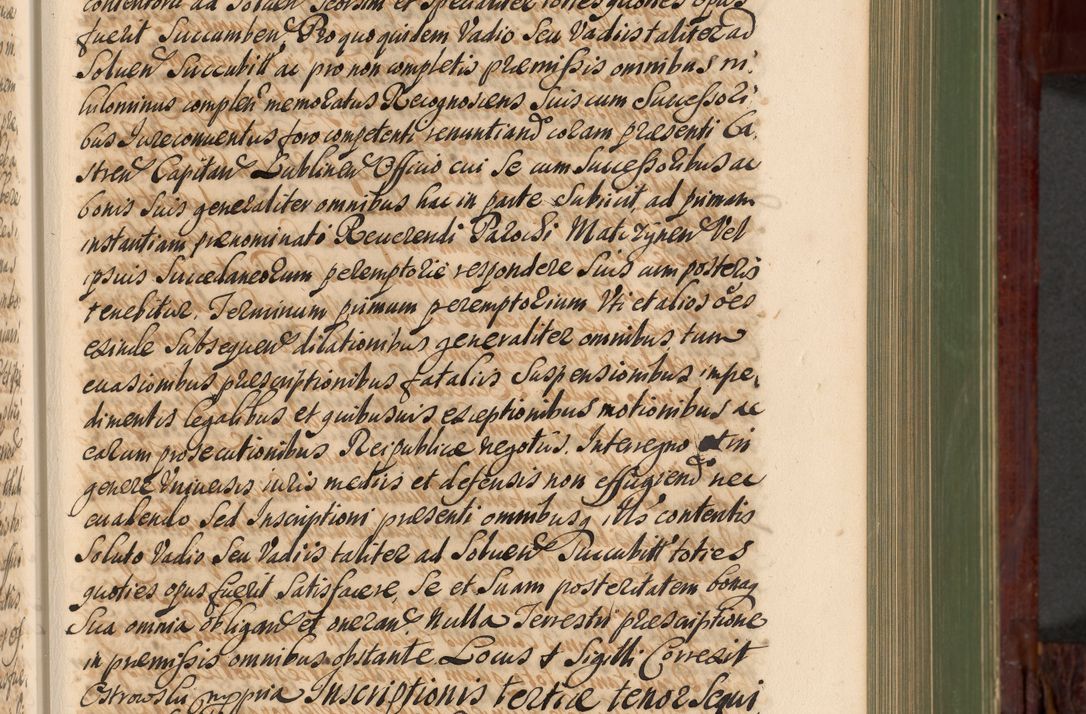 contentorū ad Soluen Seorsim et Specialiter toties quoties opus
fuerit Succumben. Pro quo quidem Vadio Seu Vadiis taliter ad
Soluen Succubitt ac pro non completis præmissis omnibus ni,
hilominus complen memoratus Recognoscens Suis cum Successori,
bus Jureconuentus foro competenti renuntiand coram præsenti Ca,
stren Capitan Lublinen Officio cui Se cum Successoribus ac
bonis Suis generaliter omnibus hac in parte Subiicit, ad primam
instantiam prænominati Reuerendi Parochi Matczynen Vel
ipsius Succedaneorum peremptorie respondere Suis cum posteris
tenebitur. Terminum primum peremptorium Vti et alios oēs
exinde Subsequen dilationibus generaliter omnibus tum
euasionibus præscriptionibus fataliis Suspensionibus impe,
dimentis legalibus et quibusuis exceptionibus motionibus ac
earum prosecutionibus Reipublicæ negotiis. Interregno et in
genere Vniuersis iuris mediis et defensis non effugiend nec
euadendo Sed Inscriptioni præsenti omnibusq illīs contentis
Soluto Vadio Seu Vadiis taliter ad Soluen Succubitt toties
quoties opus fuerit Satisfacere, Se et Suam posteritatem bonaq
Sua omnia obligan et oneran. Nulla Terrestri præscriptione
in præmissis omnibus obstante. Locus + Sigilli Correxit
Ostrowski mppria Inscriptionis tertiæ tenor Sequi